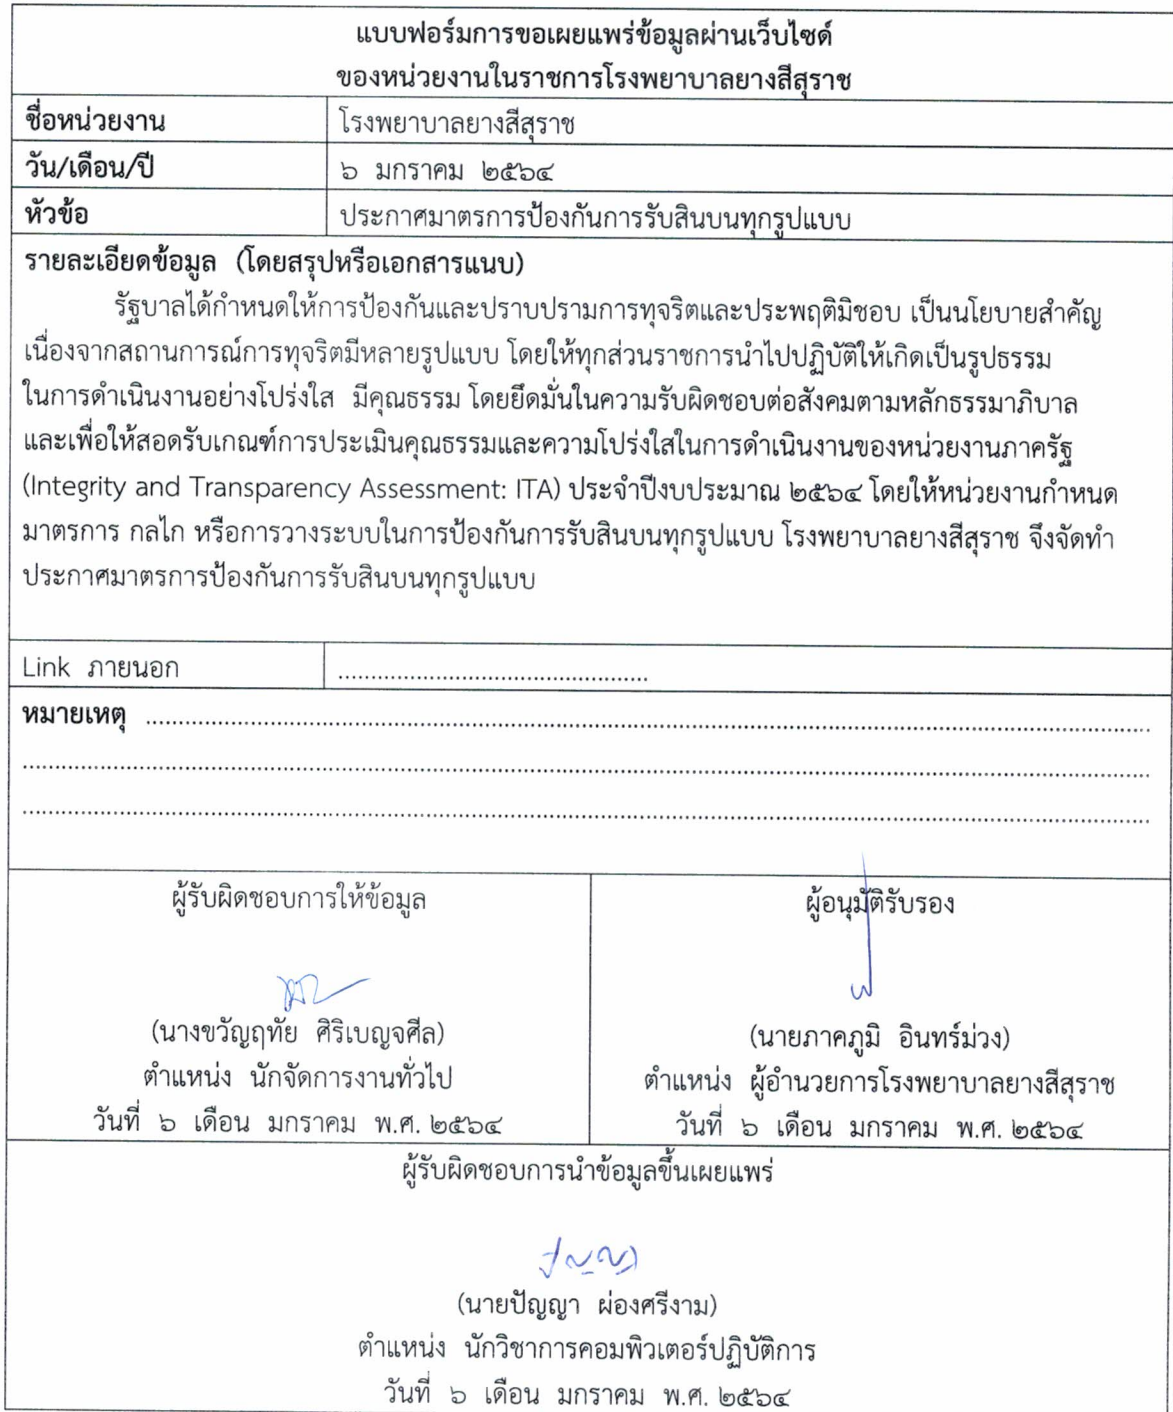 แบบฟอร์มการขอเผยแพร่ข้อมูลผ่านเว็บไซด์
ของหน่วยงานในราชการโรงพยาบาลยางสีสุราช
ชื่อหน่วยงาน โรงพยาบาลยางสีสุราช
วัน/เดือน/ปี ๖ มกราคม ๒๕๖๔
หัวข้อ ประกาศมาตรการป้องกันการรับสินบนทุกรูปแบบ
รายละเอียดข้อมูล (โดยสรุปหรือเอกสารแนบ)
รัฐบาลได้กำหนดให้การป้องกันและปราบปรามการทุจริตและประพฤติมิชอบ เป็นนโยบายสำคัญ
เนื่องจากสถานการณ์การทุจริตมีหลายรูปแบบ โดยให้ทุกส่วนราชการนำไปปฏิบัติให้เกิดเป็นรูปธรรม
ในการดำเนินงานอย่างโปร่งใส มีคุณธรรม โดยยึดมั่นในความรับผิดชอบต่อสังคมตามหลักธรรมาภิบาล
และเพื่อให้สอดรับเกณฑ์การประเมินคุณธรรมและความโปร่งใสในการดำเนินงานของหน่วยงานภาครัฐ
(Integrity and Transparency Assessment: ITA) ประจำปีงบประมาณ ๒๕๖๔ โดยให้หน่วยงานกำหนด
มาตรการ กลไก หรือการวางระบบในการป้องกันการรับสินบนทุกรูปแบบ โรงพยาบาลยางสีสุราช จึงจัดทำ
ประกาศมาตรการป้องกันการรับสินบนทุกรูปแบบ
Link ภายนอก ................................................
หมายเหตุ ................................................................................
................................................................................
................................................................................
ผู้รับผิดชอบการให้ข้อมูล
(นางขวัญฤทัย ศิริเบญจศีล)
ตำแหน่ง นักจัดการงานทั่วไป
วันที่ ๖ เดือน มกราคม พ.ศ. ๒๕๖๔
ผู้อนุมัติรับรอง
(นายภาคภูมิ อินทร์ม่วง)
ตำแหน่ง ผู้อำนวยการโรงพยาบาลยางสีสุราช
วันที่ ๖ เดือน มกราคม พ.ศ. ๒๕๖๔
ผู้รับผิดชอบการนำข้อมูลขึ้นเผยแพร่
(นายปัญญา ผ่องศรีงาม)
ตำแหน่ง นักวิชาการคอมพิวเตอร์ปฏิบัติการ
วันที่ ๖ เดือน มกราคม พ.ศ. ๒๕๖๔